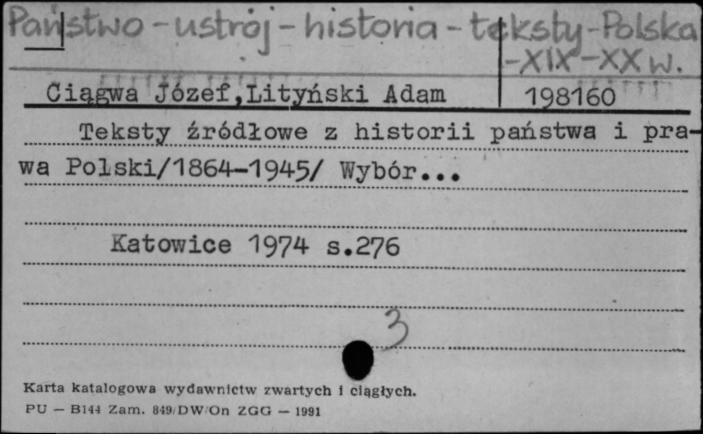 Państwo - ustrój - historia - teksty - Polska
- XIX - XX w.
Ciągwa Józef,Lityński Adam 198160
Teksty źródłowe z historii państwa i pra-
wa Polski/1864-1945/ Wybór...
Katowice 1974 s.276
3
Karta katalogowa wydawnictw zwartych i ciągłych.
PU — B144 Zam. 849/DW/On ZGG — 1991